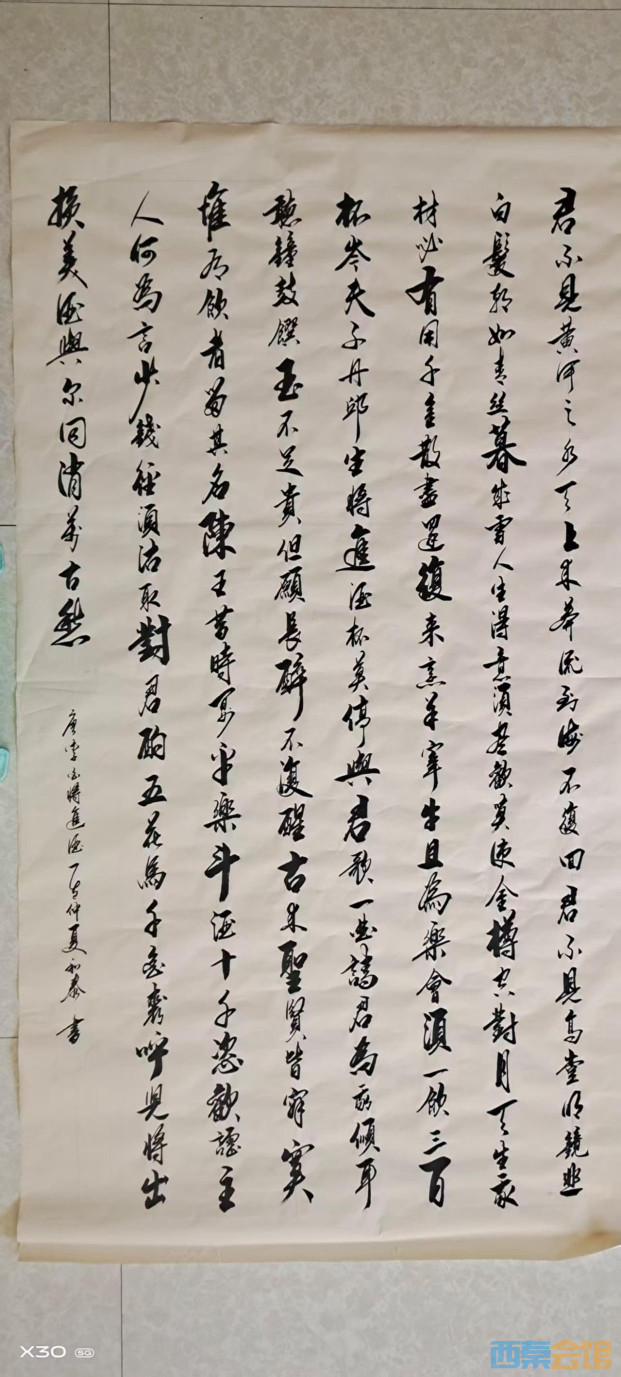 君不見黃河之水天上來奔流到海不復回君不見高堂明鏡悲
白髮朝如青絲暮成雪人生得意須盡歡莫使金樽空對月天生我
材必有用千金散盡還復來烹羊宰牛且為樂會須一飲三百
杯岑夫子丹邱生將進酒杯莫停與君歌一曲請君為我傾耳
聽鐘鼓饌玉不足貴但願長醉不復醒古來聖賢皆寂寞
惟有飲者留其名陳王昔時宴平樂斗酒十千恣歡謔主
人何為言少錢徑須沽取對君酌五花馬千金裘呼兒將出
換美酒與尔同消萬古愁
唐李白將進酒丁仲夏和泰書
X30 5G
西秦会馆